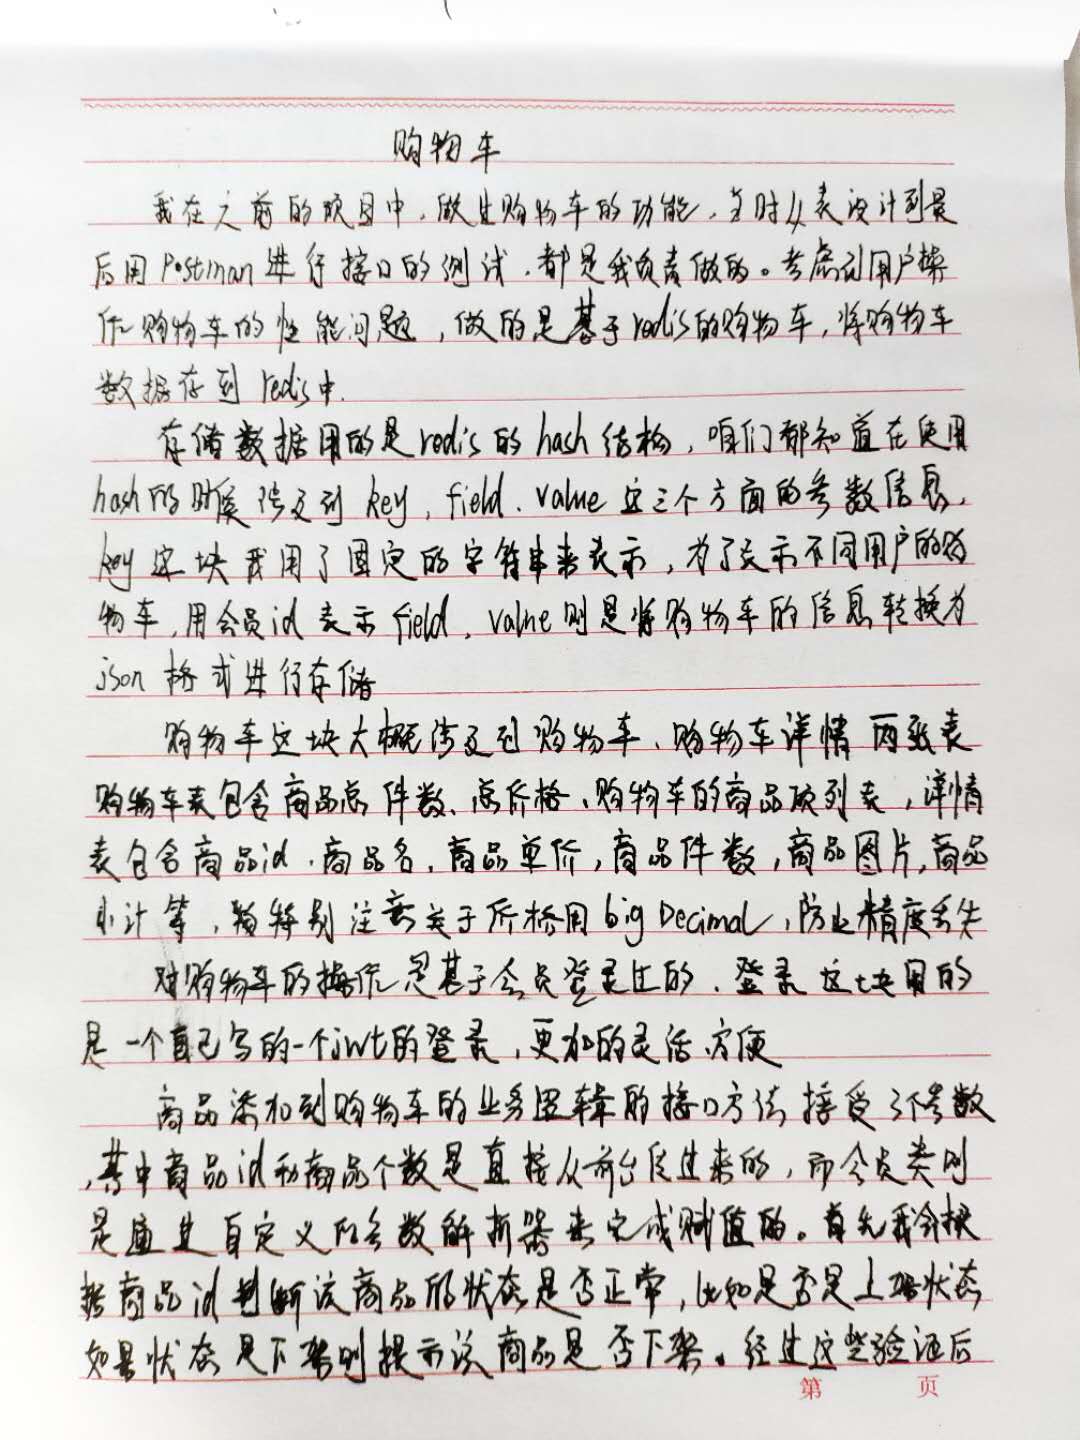 购物车
我在之前的项目中，做过购物车的功能，当时从表设计到最
后用Postman进行接口的测试，都是我负责做的。考虑到用户操
作购物车的性能问题，做的是基于redis的购物车，将购物车
数据存到redis中.
存储数据用的是redis的hash结构，咱们都知道在使用
hash的时候涉及到key，field、value这三个方面的参数信息，
key这块我用了固定的字符串来表示，为了表示不同用户的购
物车，用会员id表示field，value则是将购物车的信息转换为
json格式进行存储
购物车这块大概涉及到购物车、购物车详情两张表
购物车表包含商品总件数、总价格、购物车的商品项列表，详情
表包含商品id、商品名，商品单价，商品件数，商品图片，商品
小计等，特别注意关于价格用big Decimal，防止精度丢失
对购物车的操作是基于会员登录上的，登录这块用的
是一个自己写的一个jwt的登录，更加的灵活、方便
商品添加到购物车的业务逻辑的接口方法接受3个参数
，其中商品id和商品个数是直接从前台传过来的，而会员类则
是通过自定义的参数解析器来完成赋值的。首先我会根
据商品id判断该商品的状态是否正常，比如是否是上架状态
如果状态是下架则提示该商品是否下架。经过这些验证后
第 页